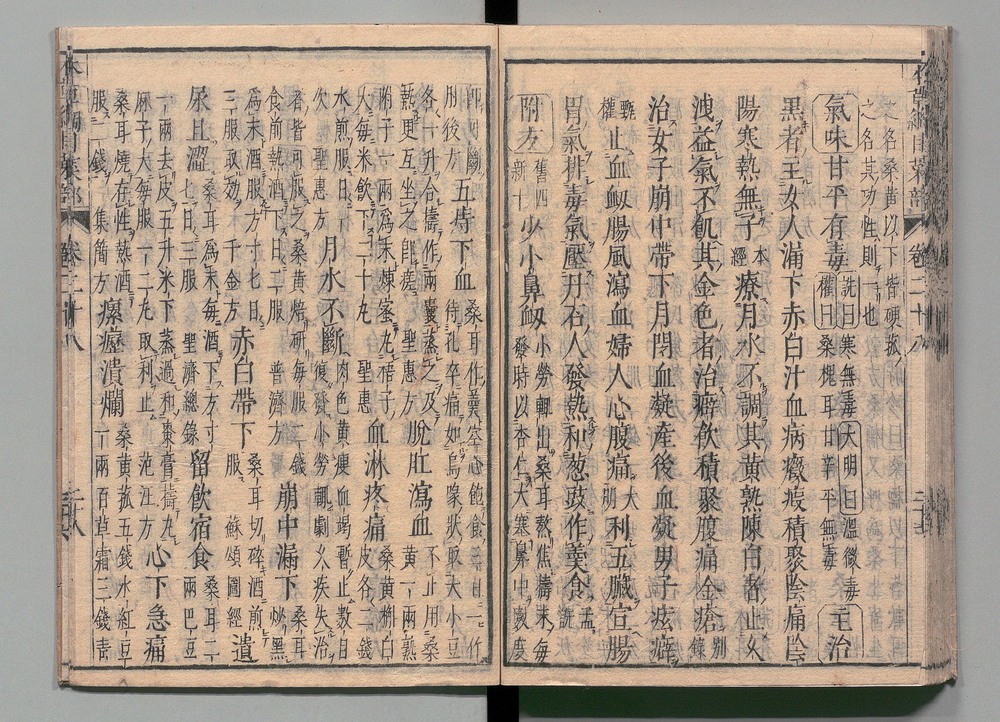 之名桑黄以下皆硬菰
之名其功性則一也
氣味甘平有毒 詵曰寒無毒大明曰溫微毒 權曰桑槐耳甘辛平無毒 主治
黑者主女人漏下赤白汁血病癥瘕積聚陰痛陰
陽寒熱無子 本經 療月水不調其黄熟陳白者止久
洩益氣不飢其金色者治癖飲積聚腹痛金瘡 別錄
治女子崩中帶下月閉血凝產後血凝男子痃癖
甄權 止血衄腸風瀉血婦人心腹痛 大明 利五臟宣腸
胃氣排毒氣壓丹石人發熱和葱豉作羹食 孟詵
附方 舊四新十 少小鼻衄 小勞輒出桑耳熬焦擣末每
發時以杏仁大塞鼻中數度
即可斷
肘後方 五痔下血 桑耳作羹空心飽食三日一作
待孔卒痛如鳥啄狀取大小豆
各一升合擣作兩囊蒸之及
熱更互坐之即瘥 聖惠方 脫肛瀉血 不止用桑
黄一兩熟
附子一兩為末煉蜜丸梧子
大每米飲下二十丸 聖惠 血淋疼痛 桑黄槲白
皮各二錢
水煎服日一
次 聖惠方 月水不斷 肉色黄瘦血竭暫止數日
復發小勞輒劇久疾失治
者皆可服之桑黄焙研每服二錢
食前熱酒下日二服 普濟方 崩中漏下 桑耳
炒黑
為末酒服方寸匕日
三服取效 千金方 赤白帶下 桑耳切碎酒煎
服 蘇頌圖經 遺
尿且澀 桑耳為末每酒下方寸
匕日三服 聖濟總錄 留飲宿食 桑耳二
兩巴豆
一兩去皮五升米下蒸過和棗膏擣丸
麻子大每服一二丸取利止 范汪方 心下急痛
桑耳燒存性熱酒
服二錢 集簡方 瘰癧潰爛 桑黄菰五錢水紅豆
一兩百草霜三錢靑
本草綱目菜部 卷二十八 二十七
本草綱目菜部 卷二十八 二十八